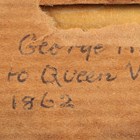 George
to Queen V
1862